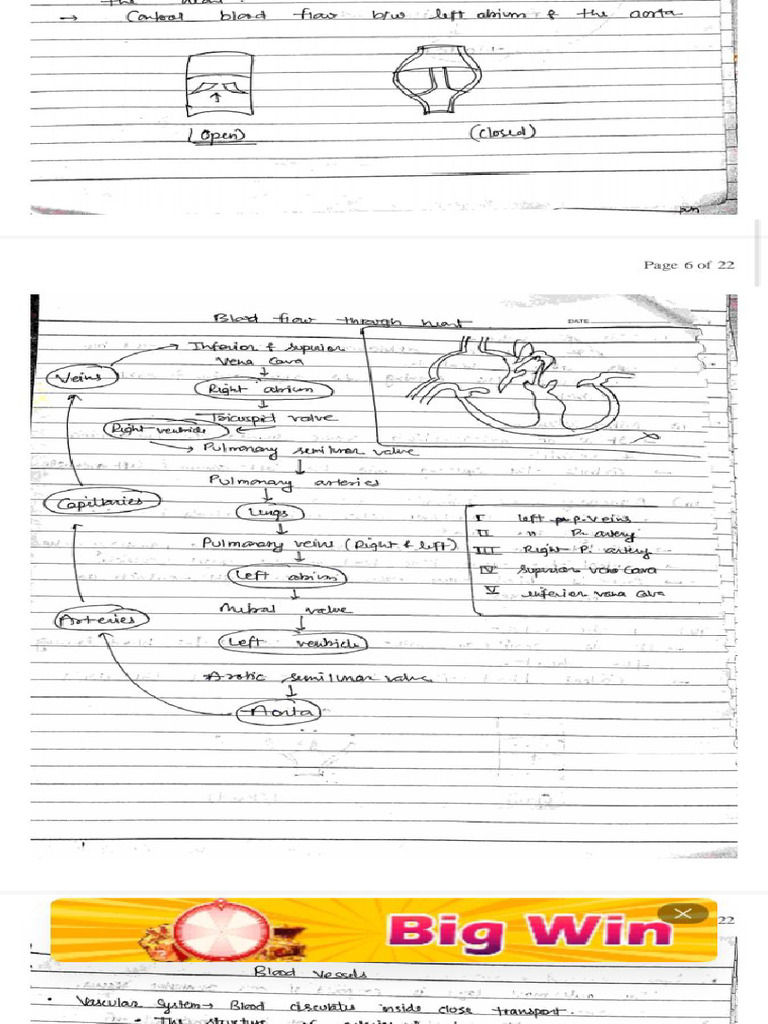 → Control blood flow b/w left atrium & the aorta
(Open)
(Closed)
Page 6 of 22
Blood flow through heart
DATE
→ Inferior & superior
Vena Cava
Veins
Right atrium
Tricuspid valve
Right ventricle
→ Pulmonary semilunar valve
Pulmonary arteries
Capillaries
Lungs
I left p.veins
II " P. artery
Pulmonary veins (Right & left)
III Right P. artery
IV superior vena cava
Left atrium
V inferior vena cava
Arteries
Mitral valve
Left ventricle
Arotic semilunar valve
Aorta
Big Win
22
Blood Vessels
• Vascular system → Blood circulates inside close transport.
• The structure of